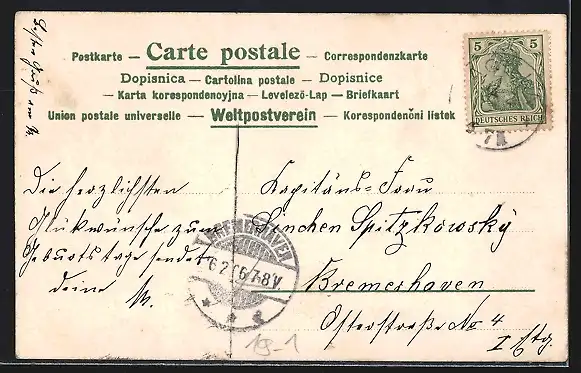 Postkarte – Carte postale – Correspondenzkarte
Dopisnica – Cartolina postale – Dopisnice
– Karta korespondenoyjna – Levelező-Lap – Briefkaart
Union postale universelle – Weltpostverein – Korespondenčni listek
5 5
DEUTSCHES REICH
Die herzlichsten
Glückwünsche zum
Geburtstage sendet
deine M.
Kapitäns-Frau
Sinchen Spitzkowsky
Bremerhaven
Osterstraße No 4
I Etg.
BREMERHAVEN
7-8V
19-1